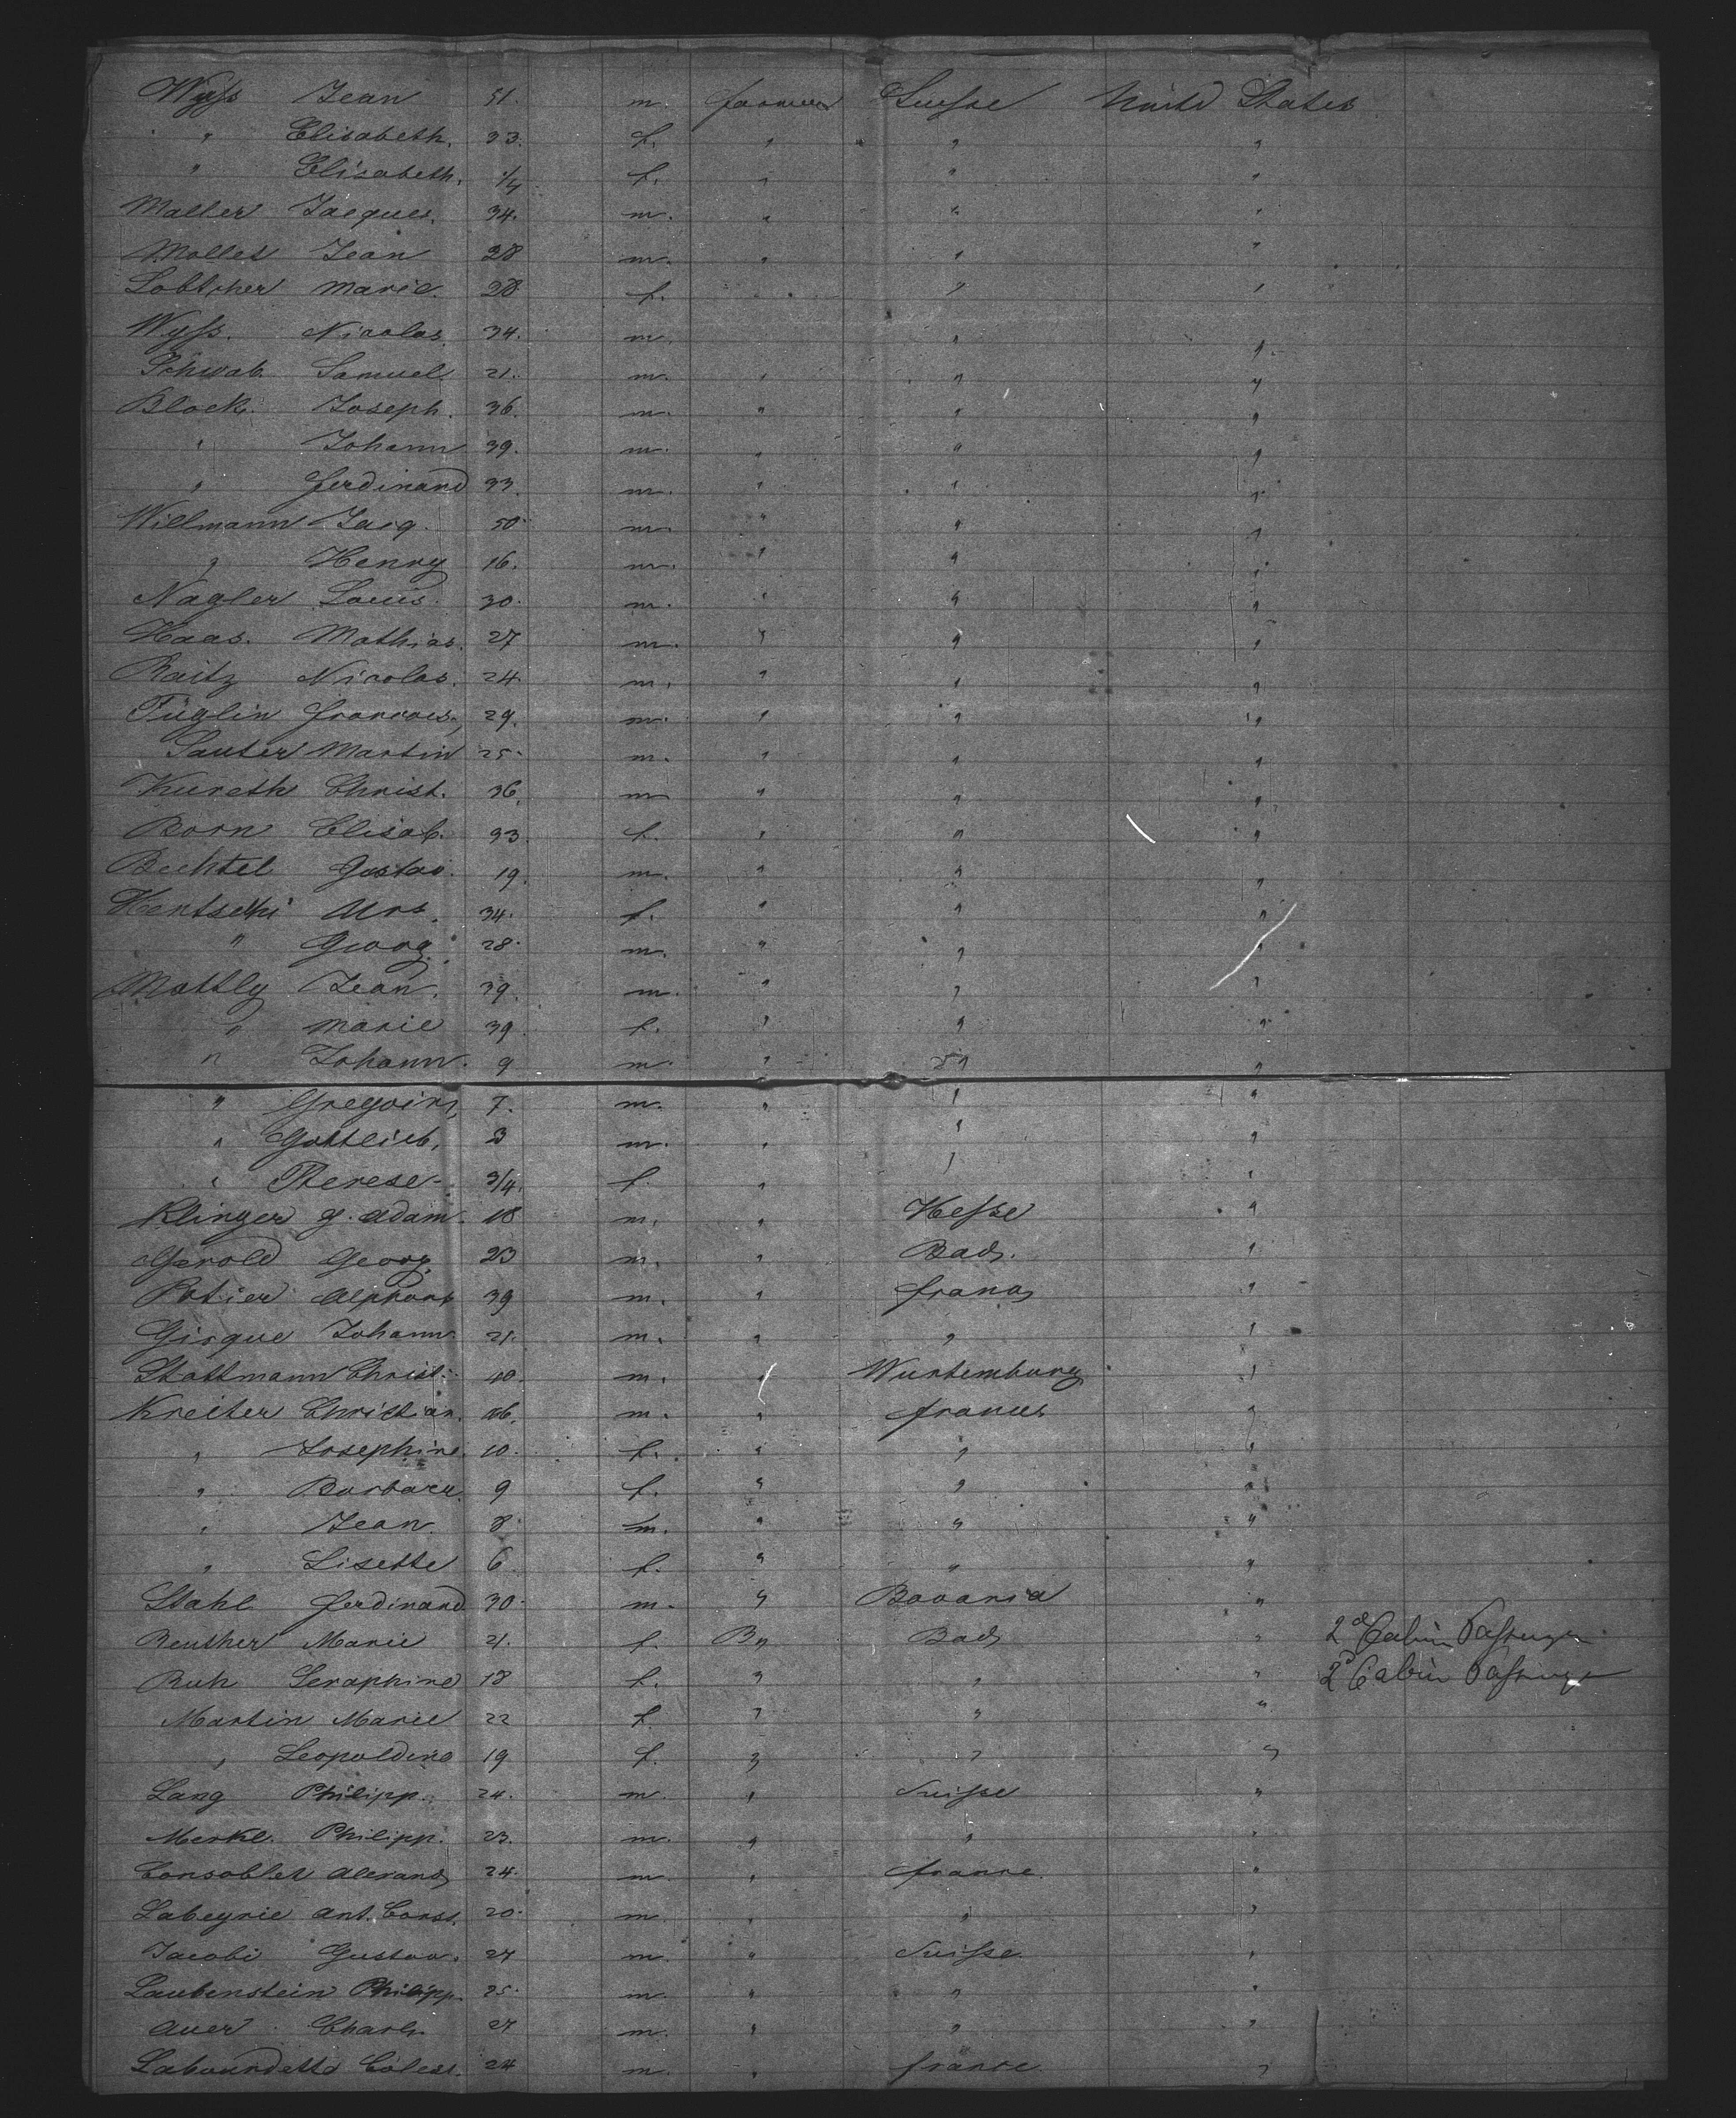 Wyss Jean 51. m. farmer Suisse United States
" Elisabeth. 33. f. " " "
" Elisabeth. 1/4 f. " " "
Maller Jacques. 34. m. " " "
Molles Jean 28 m. " " "
Marie. 28 f. " " "
Wyss. Nicolas. 34. m. " "
Schwab. Samuel. 21. m. " " "
Block. Joseph. 36. m. " " "
" Johann 39. m. " " "
" Ferdinand 33. m. " " "
Willmann Jacq. 50 m. " " "
" Henry 16. m. " " "
Nagler Louis. 30. m. " " "
Haas. Mathias. 27 m. " " "
Raitz Nicolas. 24. m. " " "
Füglin Francois. 29. m. " " "
Sauter Martin 25. m. " " "
Kureth Christ. 36. m " " "
Born Elisab. 33. f. " " "
Bechtel Gustav. 19. m. " " "
Hentschi Urs. 34. f. " " "
" Georg. 28. m. " " "
Mattly Jean. 39. m. " " "
" Marie 39. f. " " "
" Johann. 9 m. " " "
" Gregoire, 7. m. " " "
" Gottlieb, 3 m. " " "
" Therese 3/4. f. " " "
Klinger G. Adam. 18 m. " Hesse "
Gerold Georg. 23 m. " Bad. "
Potier Alphons 39 m. " France "
Gisque Johann 21. m. " " "
Stottmann Christ. 40. m. " Wurtemburg "
Kreiter Christian. 46. m. " France "
" Josephine. 10. f. " " "
" Barbara. 9 f. " " "
" Jean. 8 m. " " "
" Lisette 6 f. " " "
Stahl Ferdinand 30. m. " Bavaria "
Reuther Marie 21. f. By Bad. " 2d Cabin Passenger
Ruh Seraphine 18 f. " " " 2d Cabin Passenger
Martin Marie 22 f. " " "
" Leopoldine 19 f. " " "
Lang Philipp. 24. m. " Suisse "
Merkl. Philipp. 23. m. " " "
Alexand 24. m " France. "
Labeyrie Ant. Const. 20. m " " "
Jacobi Gustav. 27 m. " Suisse. "
Laubenstein Philipp. 25. m. " " "
Auer Charls. 27 m. " " "
Labourdette Celest. 24 m. " France. "